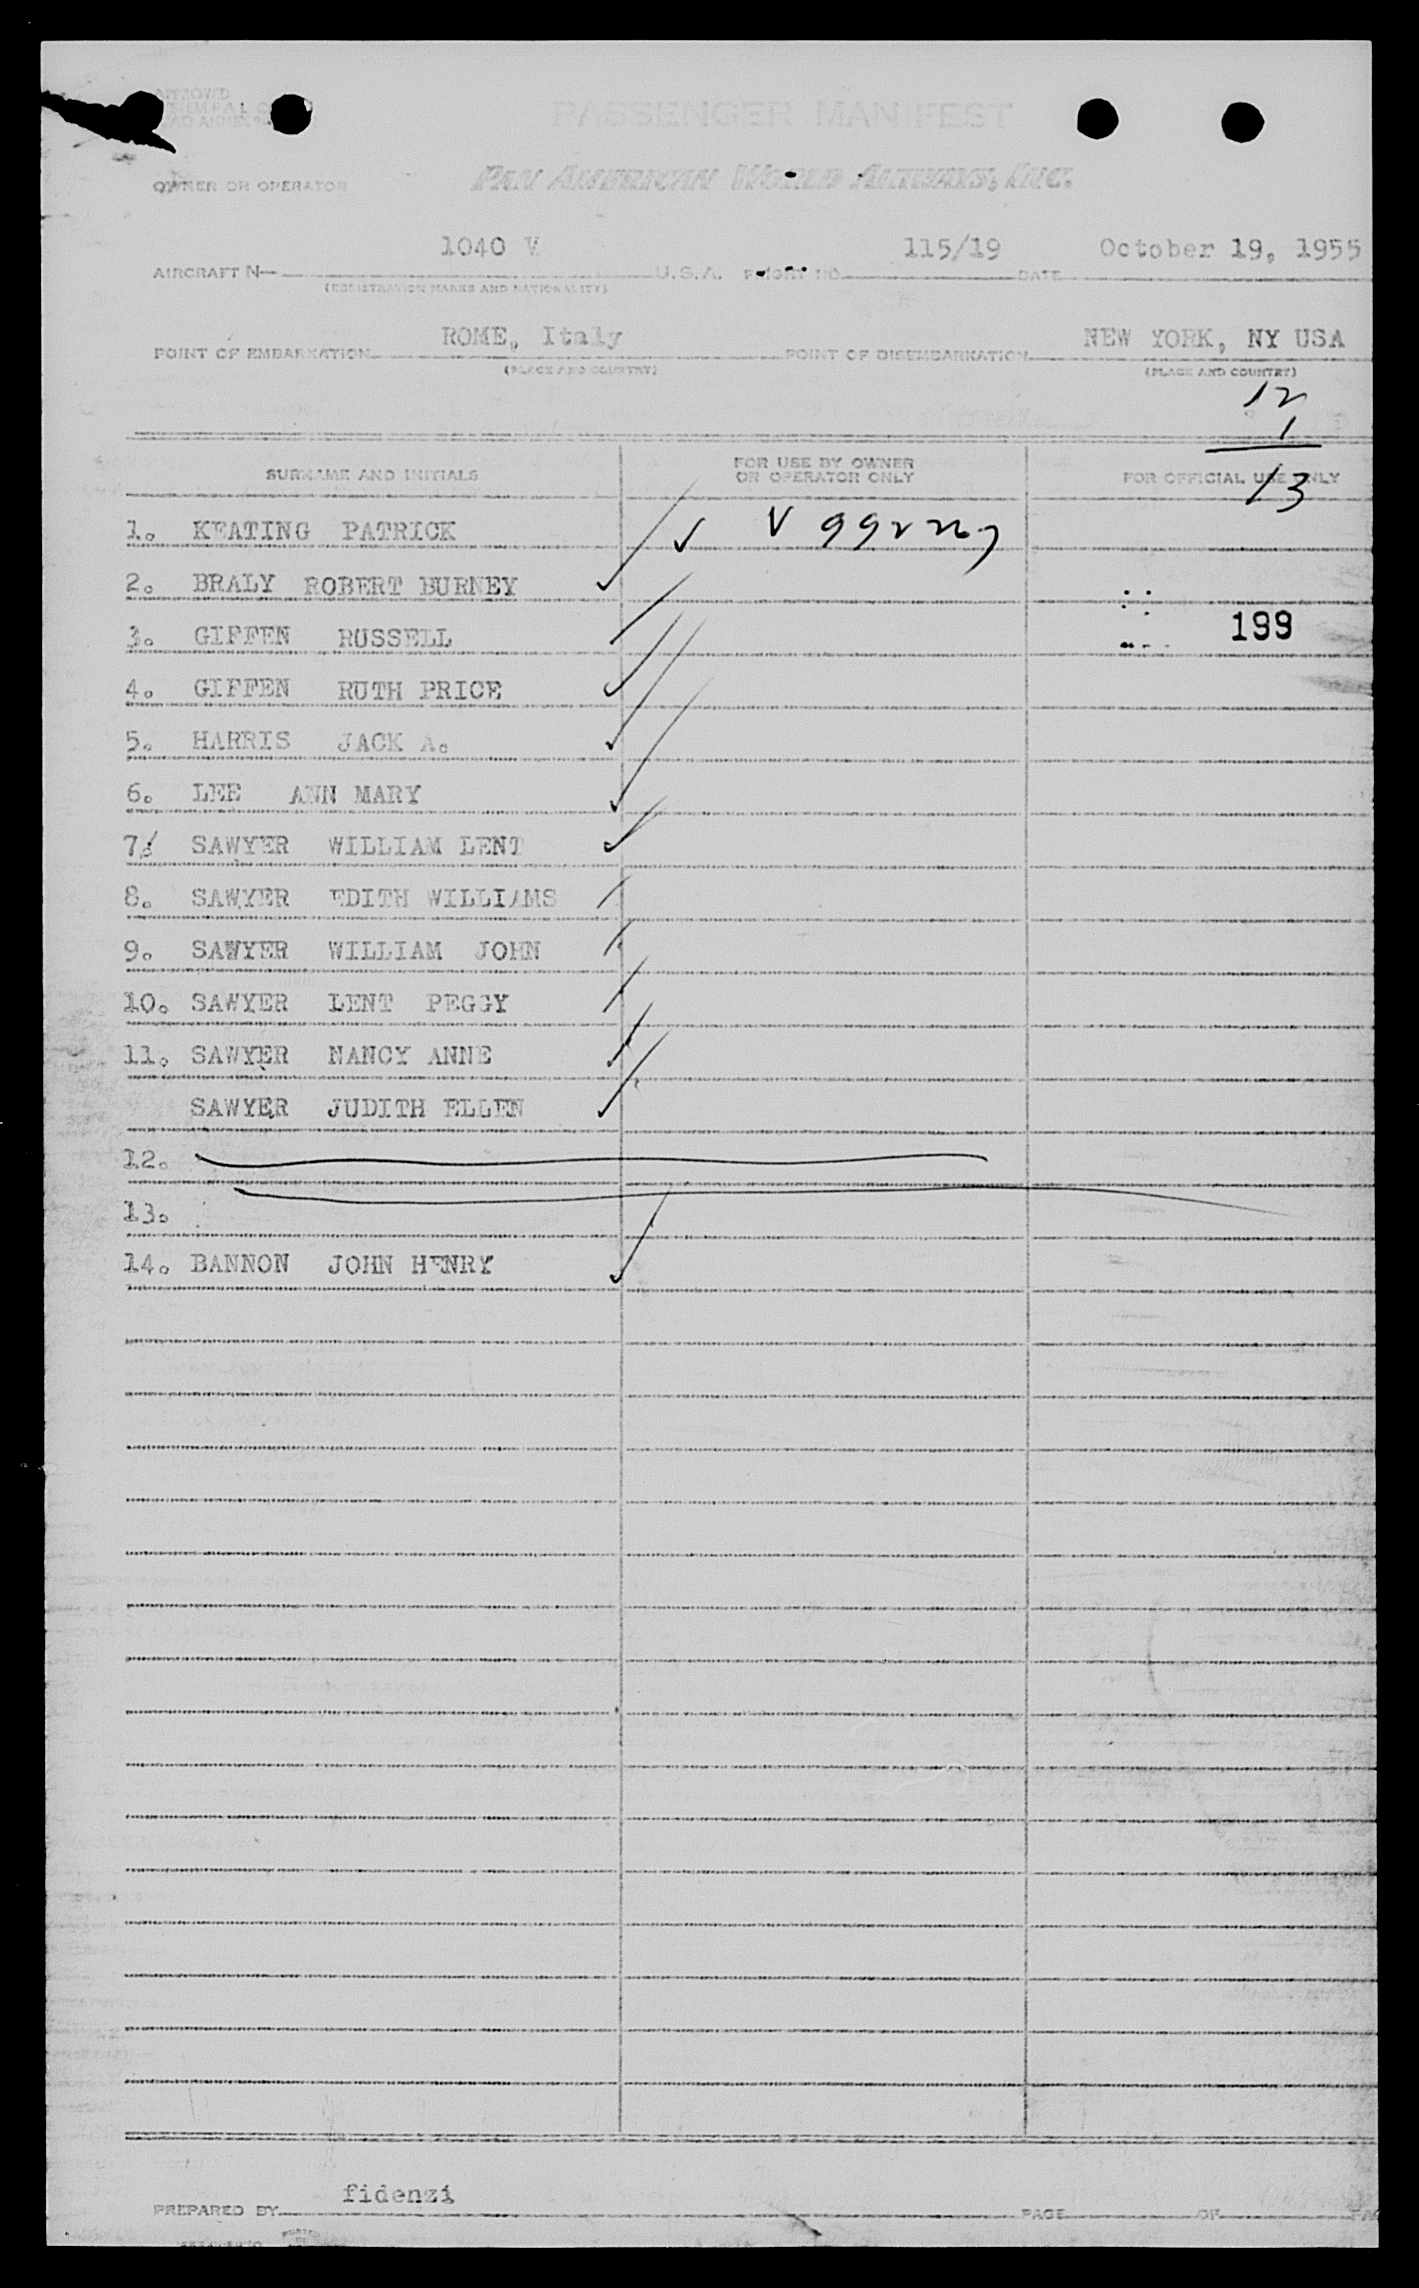 APPROVED
PASSENGER MANIFEST
OWNER OR OPERATOR PAN AMERICAN WORLD AIRWAYS, INC.
1040 V 115/19 October 19, 1955
AIRCRAFT N— U.S.A. FLIGHT NO. DATE
(REGISTRATION MARKS AND NATIONALITY)
ROME, Italy NEW YORK, NY USA
POINT OF EMBARKATION POINT OF DISEMBARKATION
(PLACE AND COUNTRY) (PLACE AND COUNTRY)
12
1
13
SURNAME AND INITIALS FOR USE BY OWNER OR OPERATOR ONLY FOR OFFICIAL USE ONLY
1. KEATING PATRICK
2. BRALY ROBERT BURNEY
3. GIFFEN RUSSELL 199
4. GIFFEN RUTH PRICE
5. HARRIS JACK A.
6. LEE ANN MARY
7. SAWYER WILLIAM LENT
8. SAWYER EDITH WILLIAMS
9. SAWYER WILLIAM JOHN
10. SAWYER LENT PEGGY
11. SAWYER NANCY ANNE
SAWYER JUDITH ELLEN
12.
13.
14. BANNON JOHN HENRY
fidenzi
PREPARED BY PAGE OF